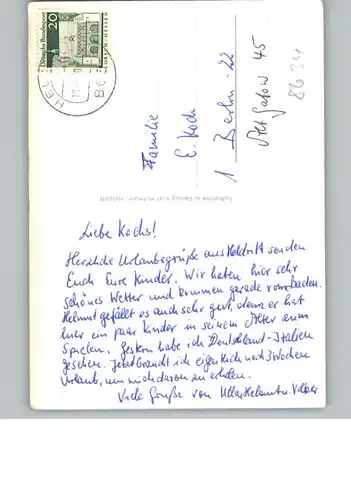 Deutsche Bundespost
20
LORSCH/HESSEN
HEL
86
Familie
E. Koch
1 Berlin-22
Alt Gatow 45
8634
Aufnahme u. Verlag Kurt Hofmann,
Liebe Kochs!
Herzliche Urlaubsgrüße aus Heldritt senden
Euch Eure Kinder. Wir haben hier sehr
schönes Wetter und kommen gerade vom Baden.
Helmut gefällt es auch sehr gut, denn er hat
hier ein paar Kinder in seinem Alter zum
Spielen. Gestern habe ich Deutschland-Italien
gesehen. Jetzt brauch ich eigentlich noch 3 Wochen
Urlaub, um mich davon zu erholen.
Viele Grüße von Ulla, Helmut u. Volker